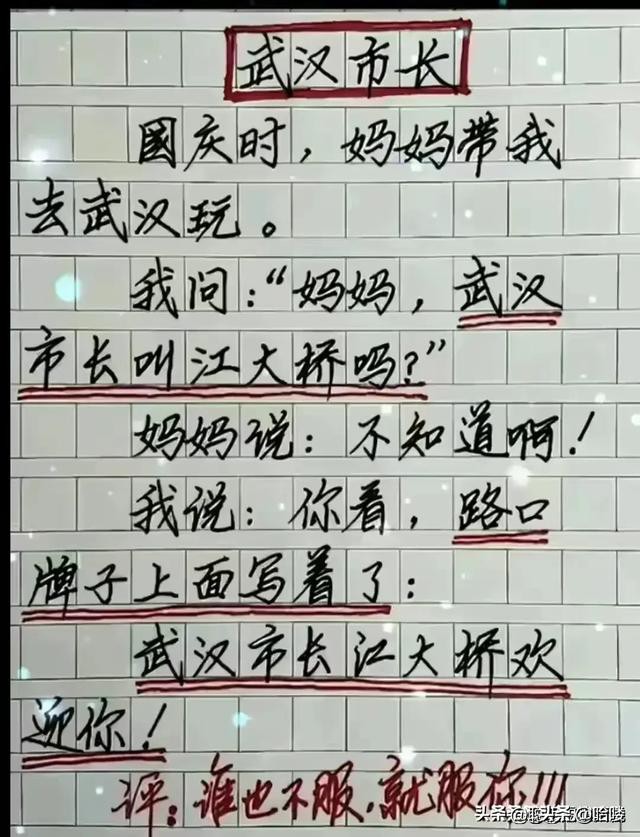 武汉市长
國庆时，妈妈带我
去武汉玩。
我问：“妈妈，武汉
市长叫江大桥吗？”
妈妈说：不知道啊！
我说：你看，路口
牌子上面写着了：
武汉市长江大桥欢
迎你！
评：谁也不服，就服你!!!